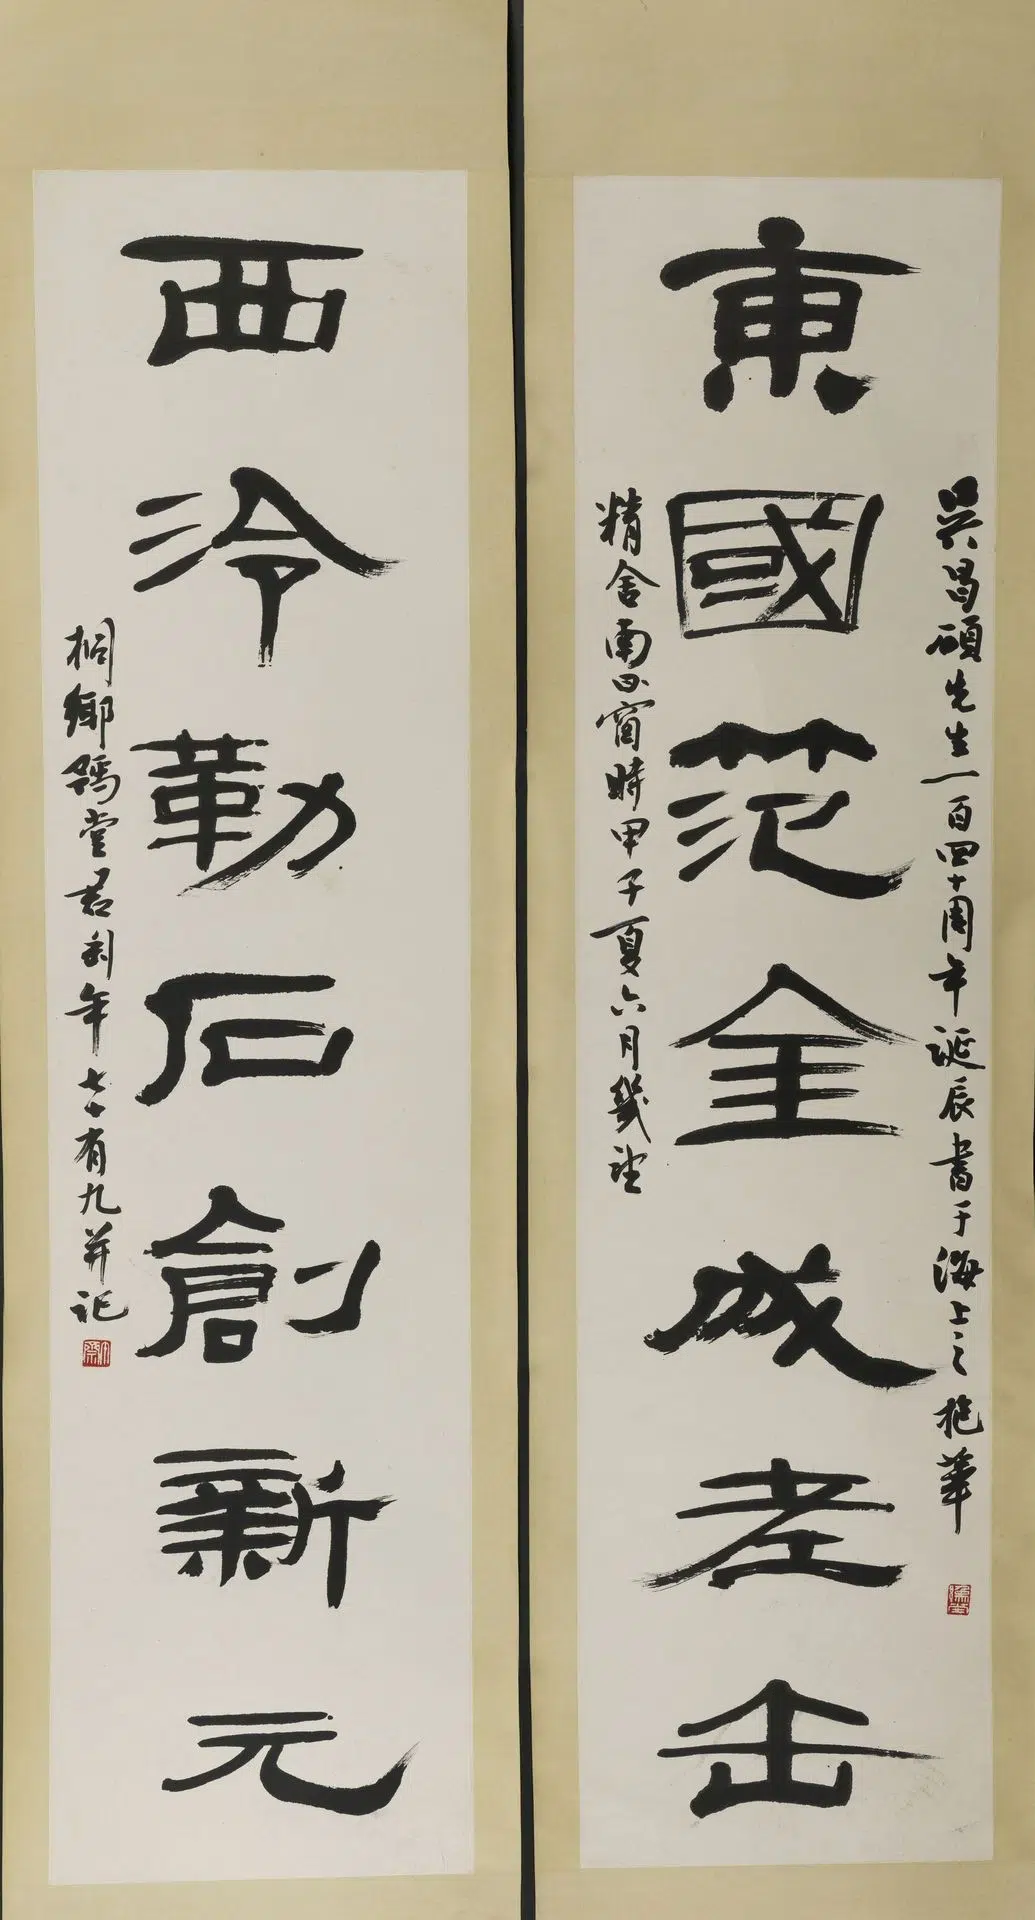 東國范金成老缶
吳昌碩先生一百四十周年誕辰書于海上之抱華
精舍南窗時甲子夏六月幾望
西泠勒石創新元
桐鄉君匋年七十有九并記